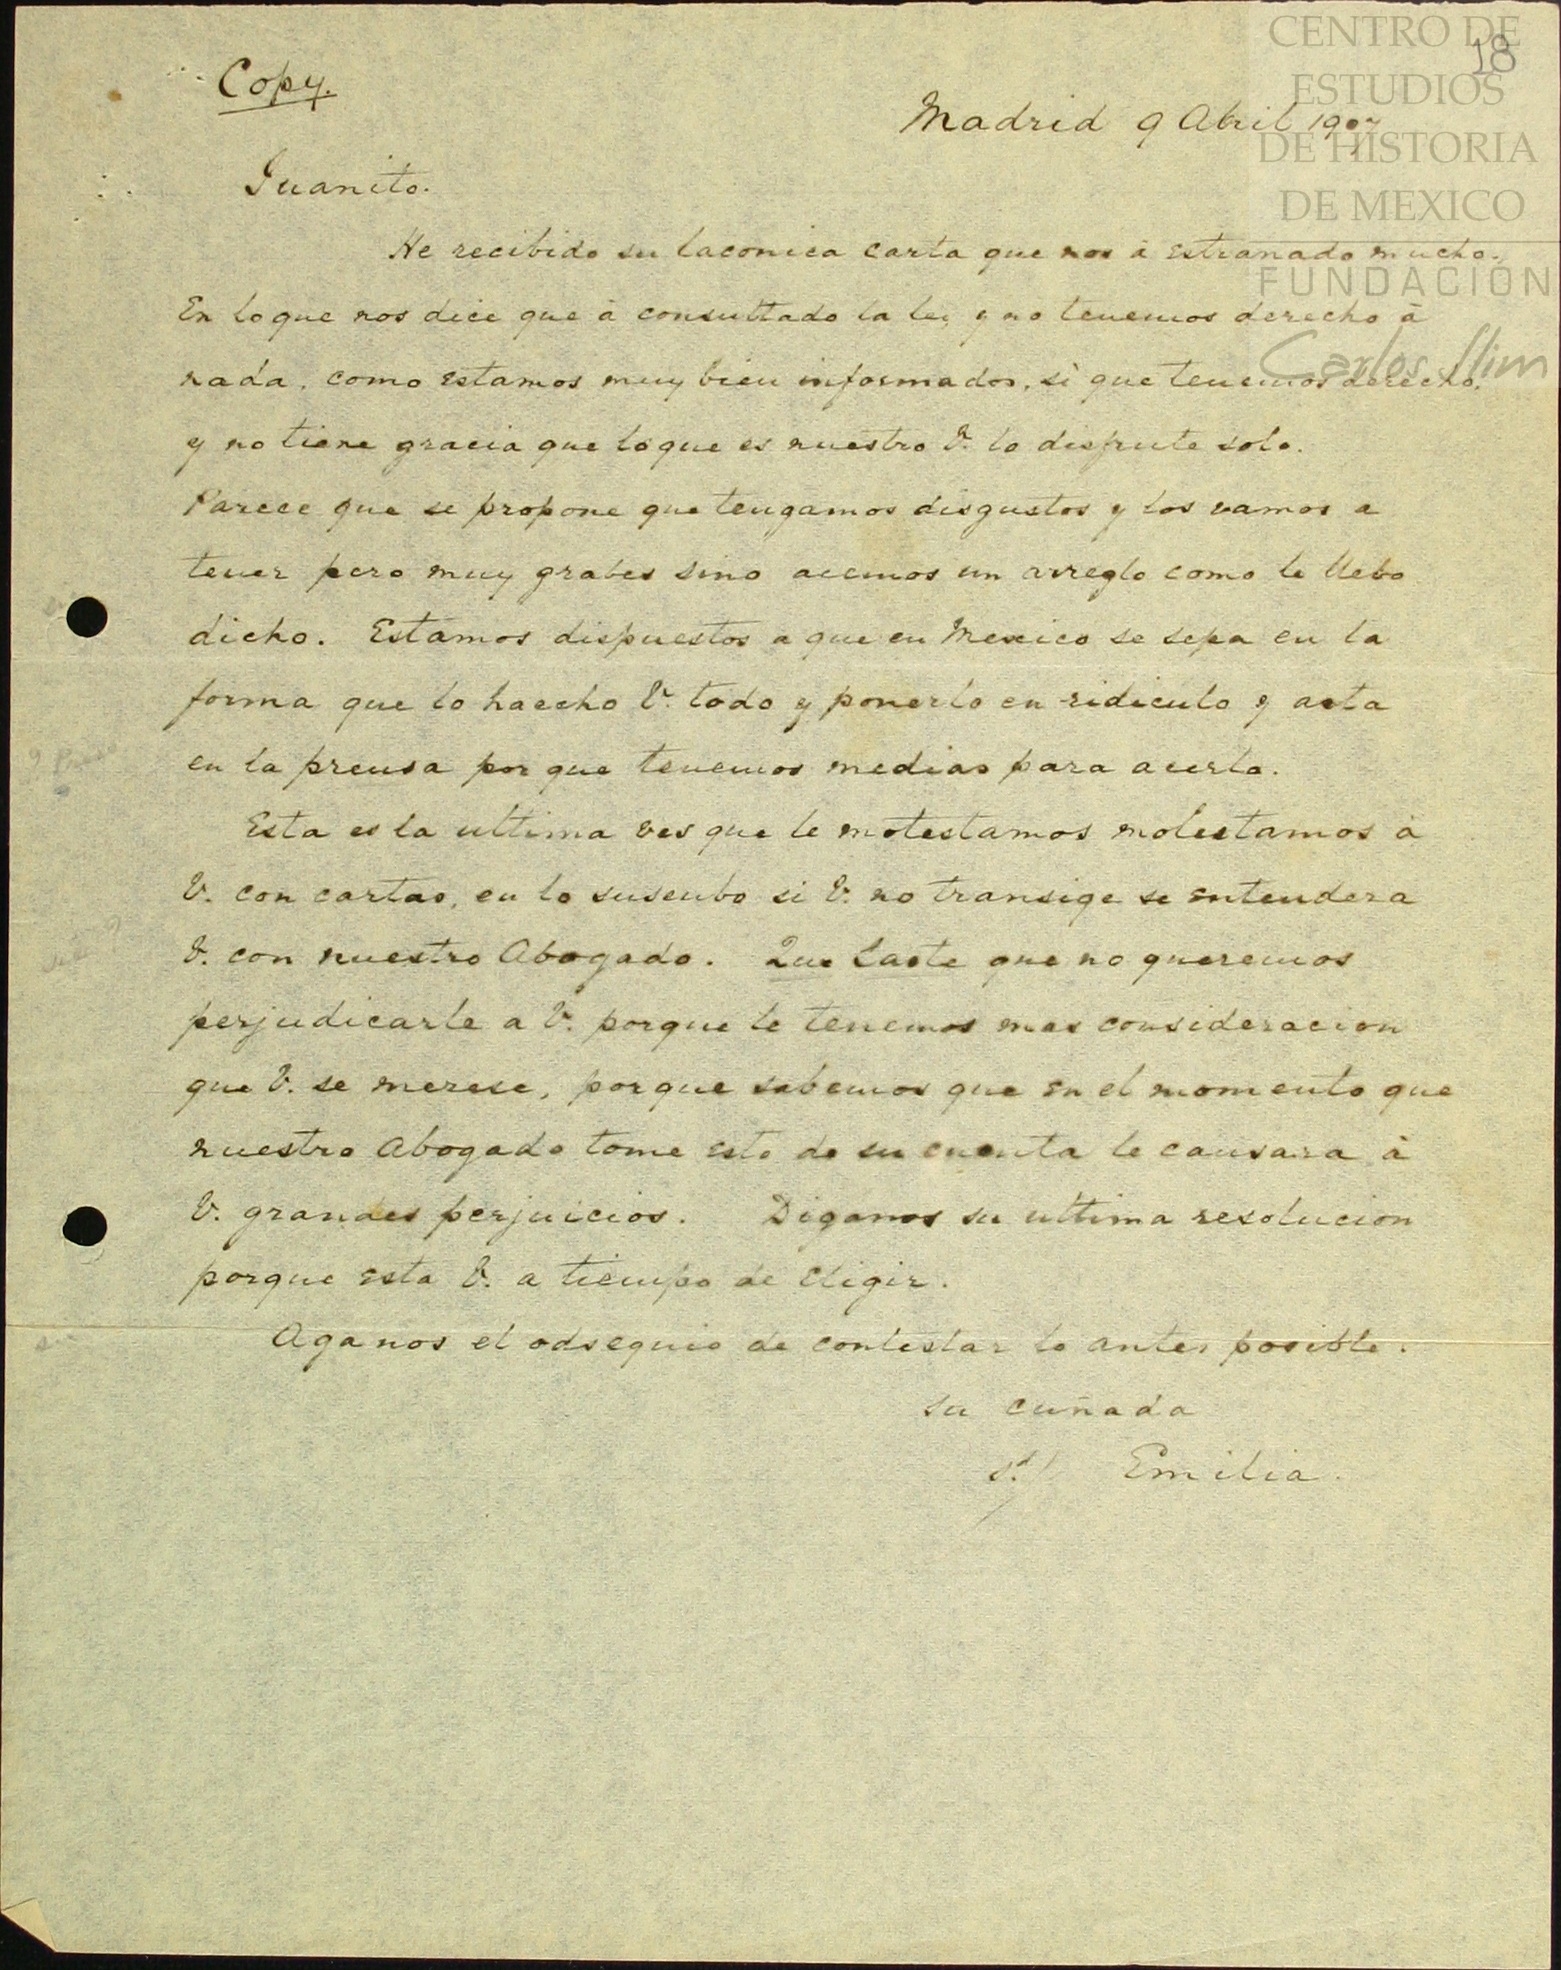 CENTRO DE
ESTUDIOS
DE HISTORIA
DE MEXICO
FUNDACIÓN
Carlos Slim
18
Copy.
Madrid 9 Abril 1907
Juanito.
He recibido su laconica carta que nos à estranado mucho.
En loque nos dice que à consultado la ley y no tenemos derecho à
nada, como estamos muy bien informados, si que tenemos derecho,
y no tiene gracia que loque es nuestro V. lo disfrute solo.
Parece que se propone que tengamos disgustos y los vamos a
tener pero muy grabes sino acemos un arreglo como le llebo
dicho. Estamos dispuestos a que en Mexico se sepa en la
forma que lo haecho V. todo y ponerlo en ridiculo y asta
en la prensa por que tenemos medias para acerlo.
Esta es la ultima ves que le motestamos molestamos à
V. con cartas, en lo susecibo si V. no transige se entendera
V. con nuestro Abogado. Que que no queremos
perjudicarle a V. porque le tenemos mas consideracion
que V. se merese, porque sabemos que en el momento que
nuestro Abogado tome esto de su cuenta le causara à
V. grandes perjuicios. Diganos su ultima resolucion
porque esta V. a tiempo de eligir.
Aganos el odsequio de contestar lo antes posible.
su cuñada
Emilia.